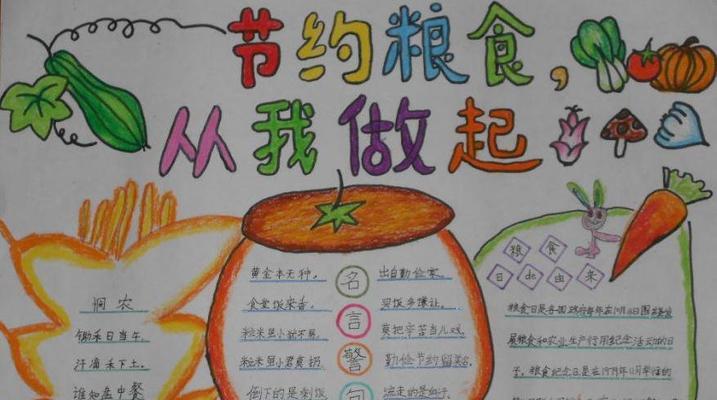 节约粮食，
从我做起
悯农
锄禾日当午，
汗滴禾下土。
谁知盘中餐
名言警句
黄金本无种，
出自勤俭家。
食堂饭菜香，
粒米虽小君莫扔，
勤俭节约留美名
倒下的是剩饭
流走的是血汗
粮食
日de由来
粮食日是各国政府每年在10月16日围绕发
展粮食和农业生产行用纪念活动的日
子。粮食纪念日是在1979年11月举行的